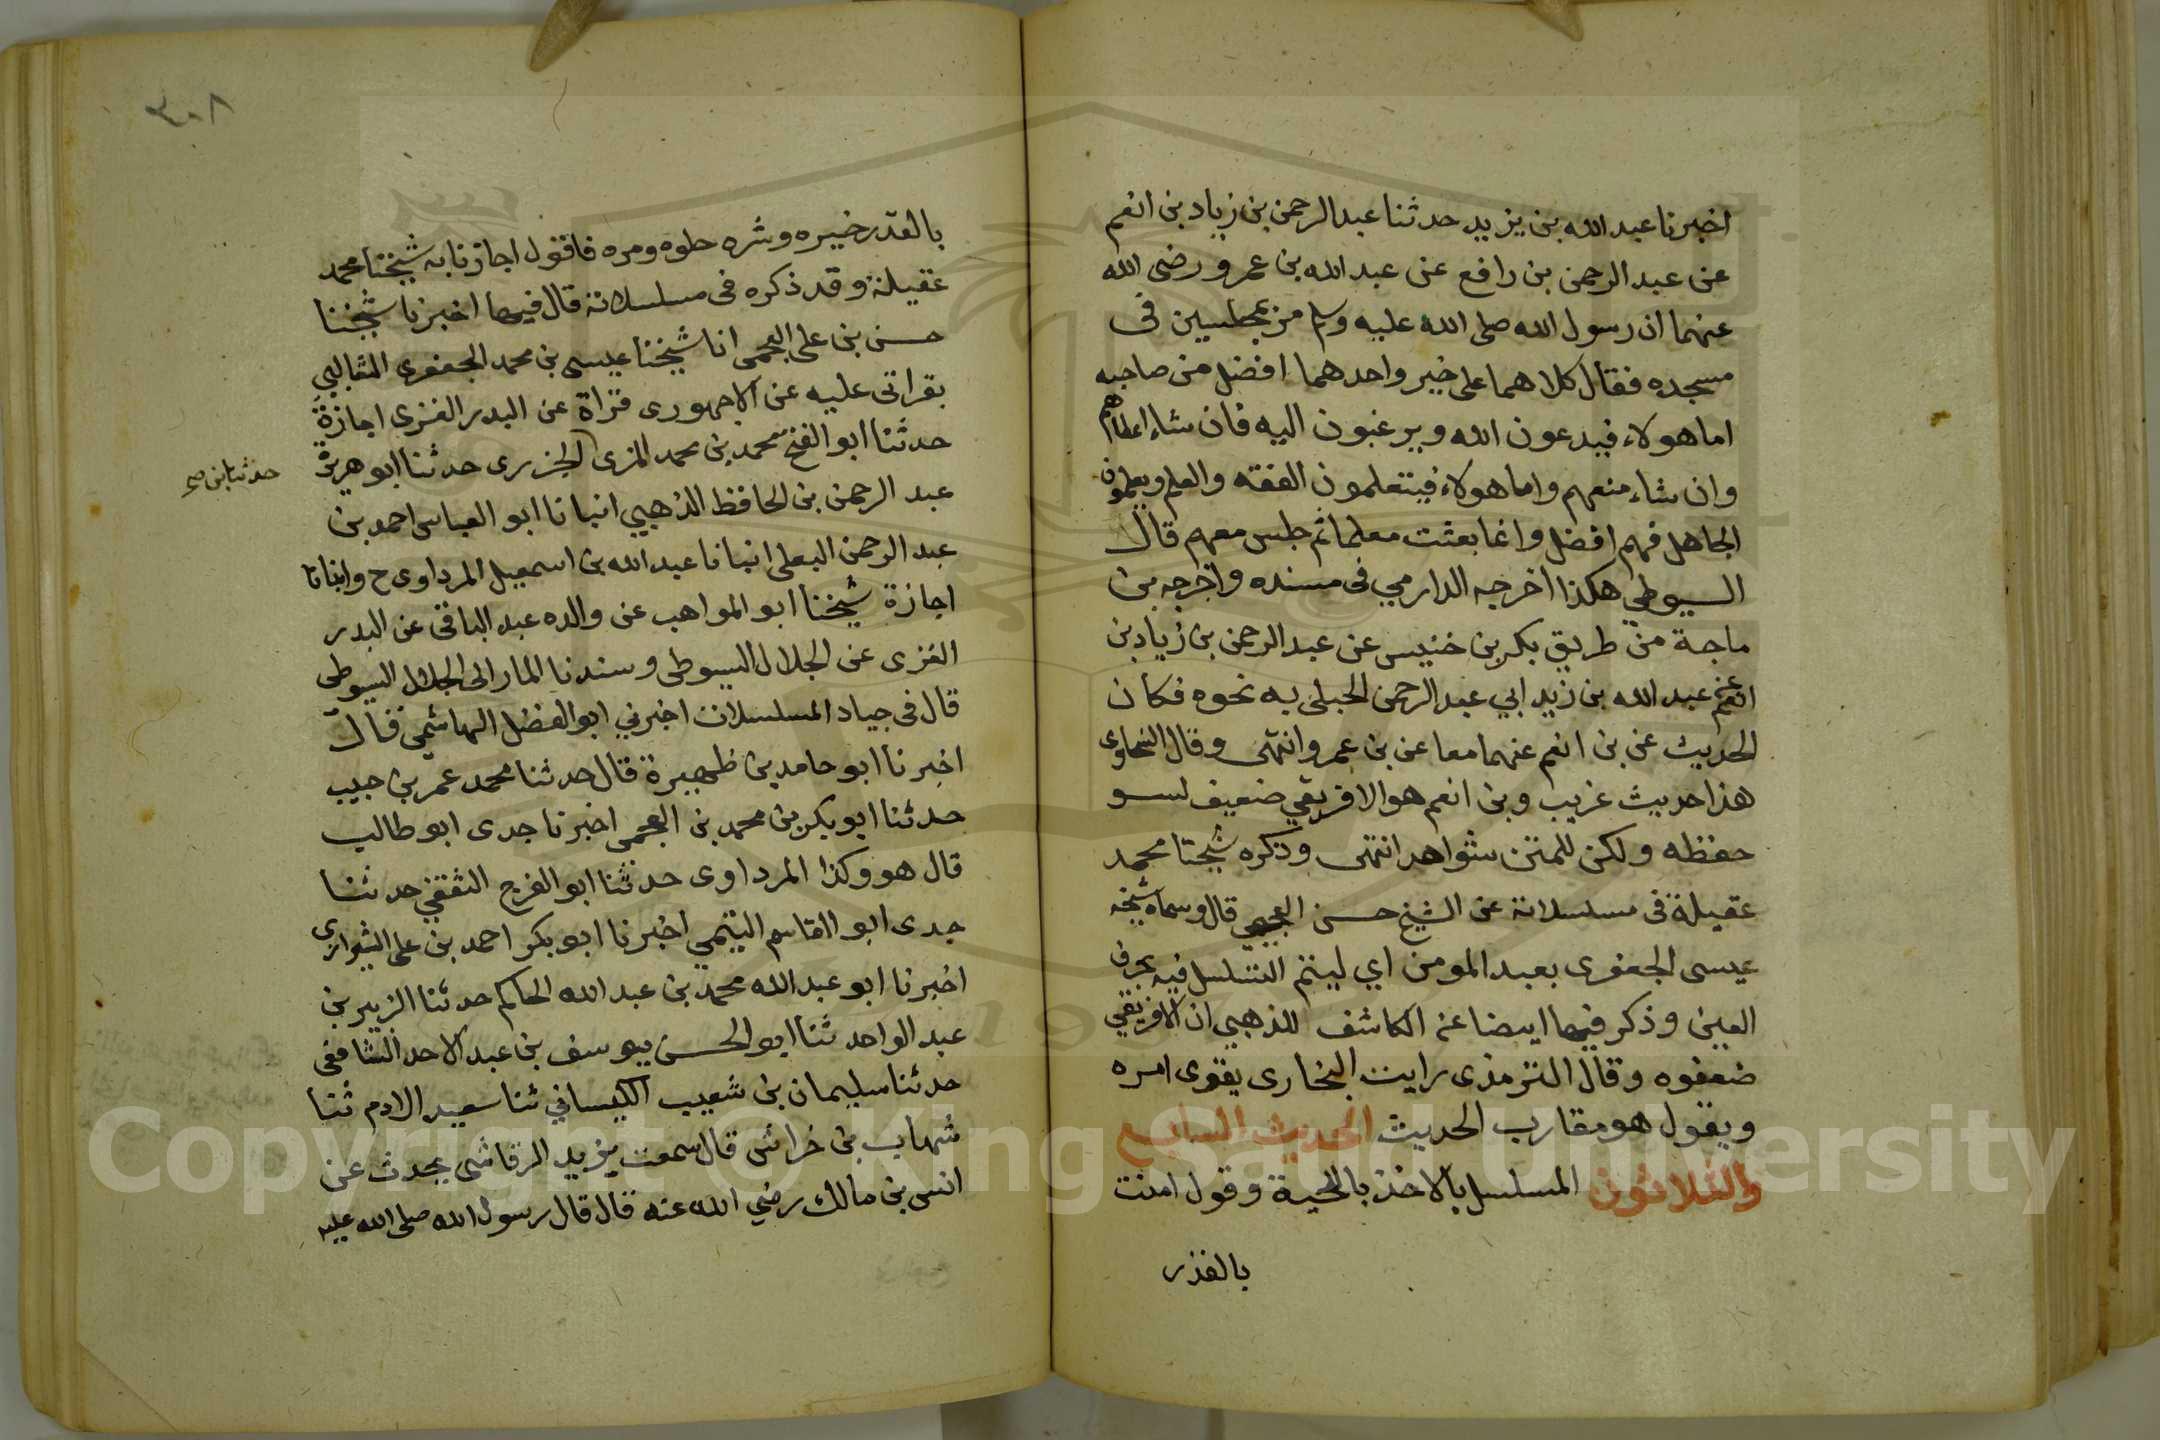 اخبرنا عبد الله بن يزيد حدثنا عبد الرحمن بن زياد بن انعم
عن عبد الرحمن بن رافع عن عبد الله بن عمرو رضى الله
عنهما ان رسول الله صلى الله عليه وسلم مر بمجلسين فى
مسجده فقال كلاهما على خير واحدهما افضل من صاحبه
اما هولاء فيدعون الله ويرغبون اليه فان شاء اعطاهم
وان شاء منعهم واما هولاء فيتعلمون الفقه والعلم ويعلمون
الجاهل فهم افضل وانما بعثت معلما ثم جلس معهم قال
السيوطي هكذا اخرجه الدارمي فى مسنده واخرجه بن
ماجة من طريق بكر بن خنيس عن عبد الرحمن بن زياد بن
انعم عن عبد الله بن زيد ابي عبد الرحمن الحبلى به نحوه فكان
الحديث عن بن انعم عنهما معا عن بن عمرو انتهى وقال السخاوى
هذا حديث غريب وبن انعم هو الافريقي ضعيف لسو
حفظه ولكن للمتن شواهد انتهى وذكره شيخنا محمد
عقيلة فى مسلسلاته عن الشيخ حسن العجيمي قال وسماه شيخه
عيسى الجعفرى بعبد المومن اي ليتم التسلسل فيه بحرف
العين وذكر فيها ايضا عن الكاشف للذهبي ان الافريقي
ضعفوه وقال الترمذى رايت البخارى يقوى امره
ويقول هو مقارب الحديث الحديث السابع
والثلاثون المسلسل بالاخذ باللحية وقول امنت
بالقدر
٨٠٣
بالقدر خيره وشره حلوه ومره فاقول اجازنا به شيخنا محمد
عقيلة وقد ذكره فى مسلسلاته قال فيها اخبرنا شيخنا
حسن بن على العجمى انا شيخنا عيسى بن محمد الجعفرى الثعالبي
بقراتى عليه عن الاجهورى قراة عن البدر الغزى اجازة
حدثنا ابو الفتح محمد بن محمد المزى الجزرى حدثنا ابو هريرة
حدثنا بن صح
عبد الرحمن بن الحافظ الذهبي انبانا ابو العباس احمد بن
عبد الرحمن البعلى انبانا عبد الله بن اسمعيل المرداوى ح وانبانا
اجازة شيخنا ابو المواهب عن والده عبد الباقى عن البدر
الغزى عن الجلال السيوطى وسندنا المار الى الجلال السيوطى
قال فى جياد المسلسلات اخبرني ابو الفضل الهاشمي قال
اخبرنا ابو حامد بن ظهيرة قال حدثنا محمد عمر بن حبيب
حدثنا ابو بكر بن محمد بن العجمى اخبرنا جدى ابو طالب
قال هو وكذا المرداوى حدثنا ابو الفرج الثقفي حدثنا
جدى ابو القاسم التيمي اخبرنا ابو بكر احمد بن على الشيرازي
اخبرنا ابو عبد الله محمد بن عبد الله الحاكم حدثنا الزبير بن
عبد الواحد ثنا ابو الحسن يوسف بن عبد الاحد الشافعى
حدثنا سليمان بن شعيب الكيساني ثنا سعيد الادم ثنا
شهاب بن خراش قال سمعت يزيد الرقاشى يحدث عن
انس بن مالك رضي الله عنه قال قال رسول الله صلى الله عليه
Copyright © King Saud University